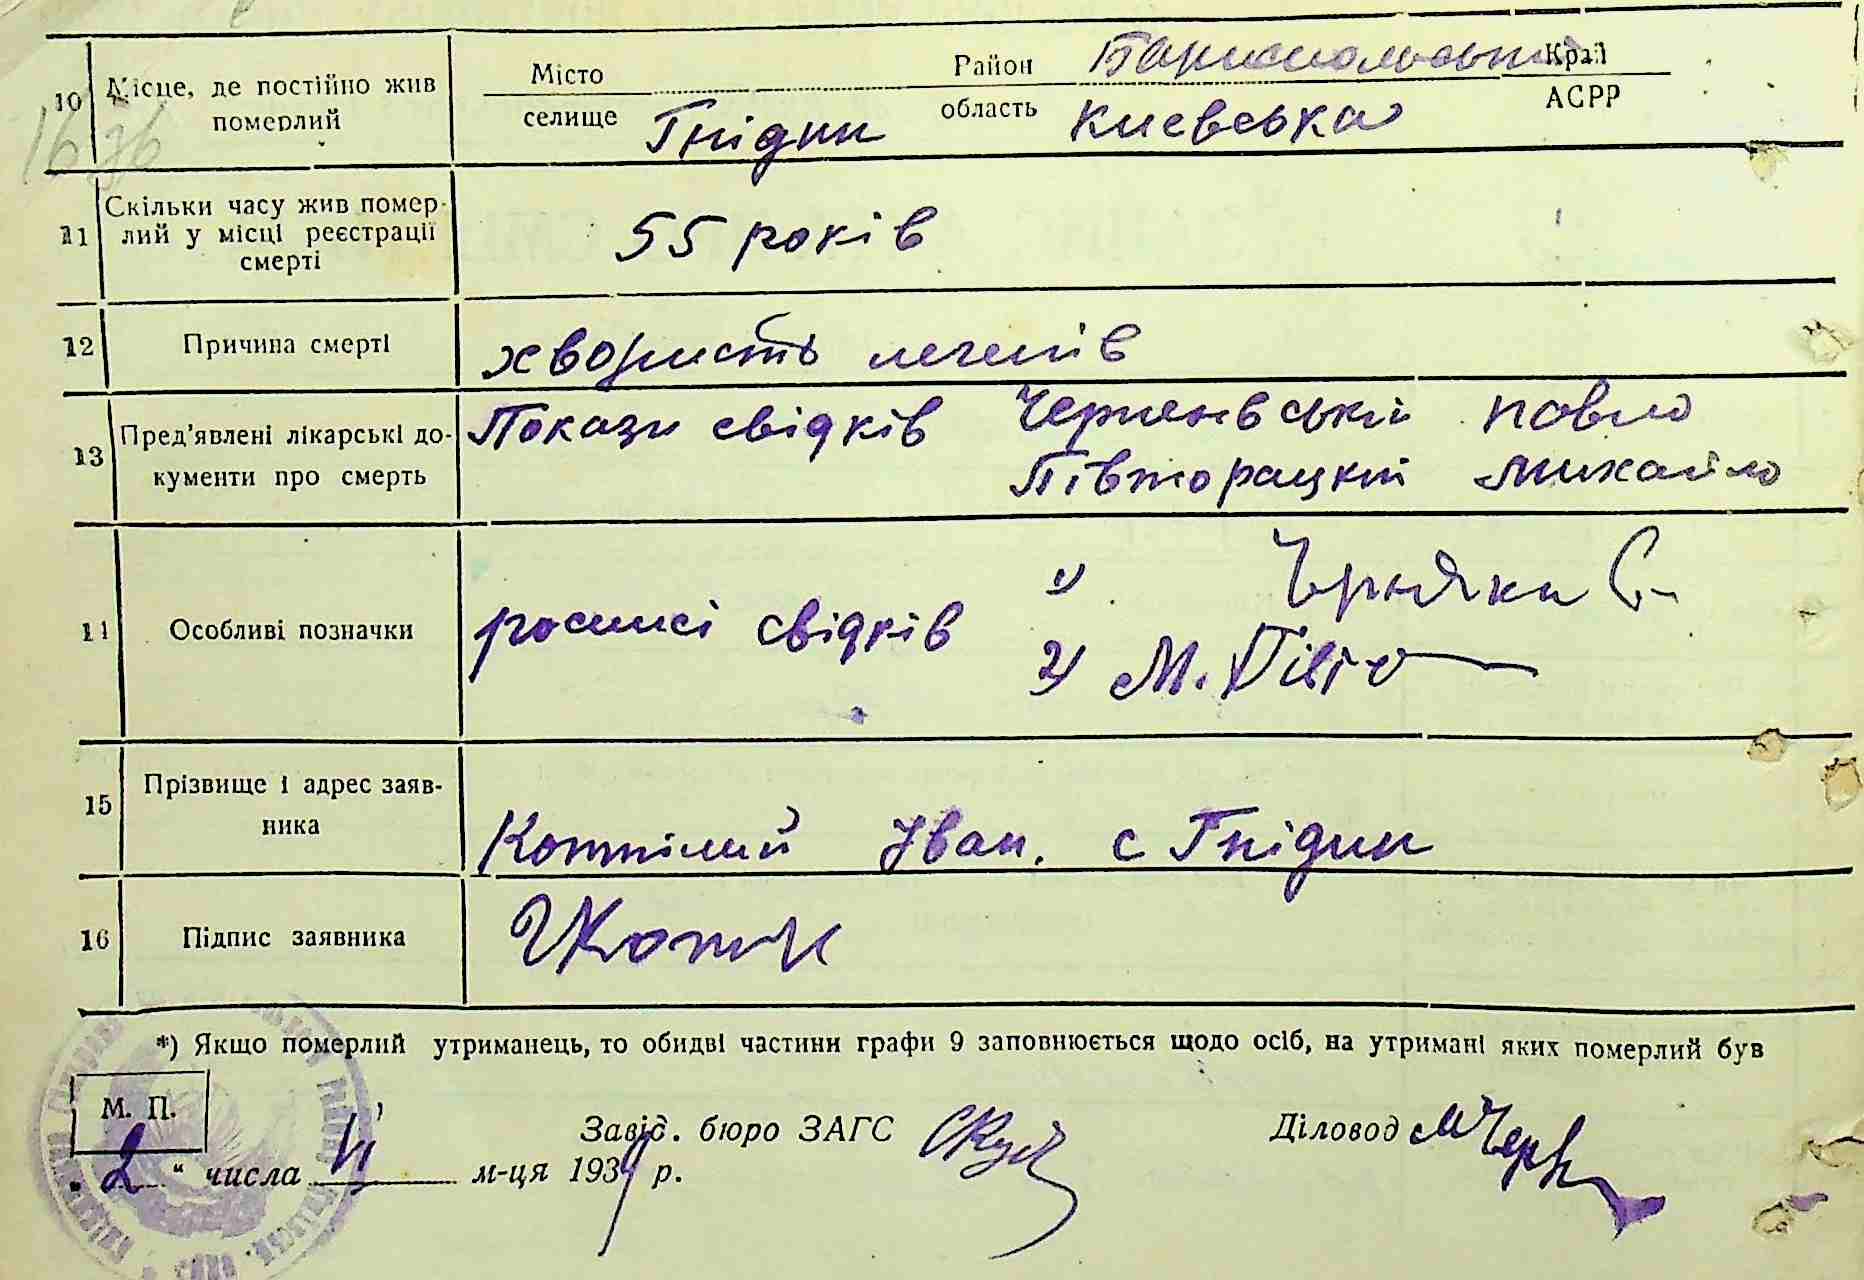 10 Місце, де постійно жив померлий
Місто Район Бориспольський Край
селище Гнідин область Киевська АСРР
11 Скільки часу жив помер-
лий у місці реєстрації
смерті
55 років
12 Причина смерті
хвористь легенів
13 Пред'явлені лікарські до-
кументи про смерть
Покази свідків Павло
Півторацкий Михайло
14 Особливі позначки
росписі свідків
1)
2) М. Півто
15 Прізвище і адрес заяв-
ника
Іван. с Гнідин
16 Підпис заявника
*) Якщо померлий утриманець, то обидві частини графи 9 заповнюється щодо осіб, на утримані яких померлий був
М. П.
Завід. бюро ЗАГС Діловод
„ 2 “ числа м-ця 1939 р.